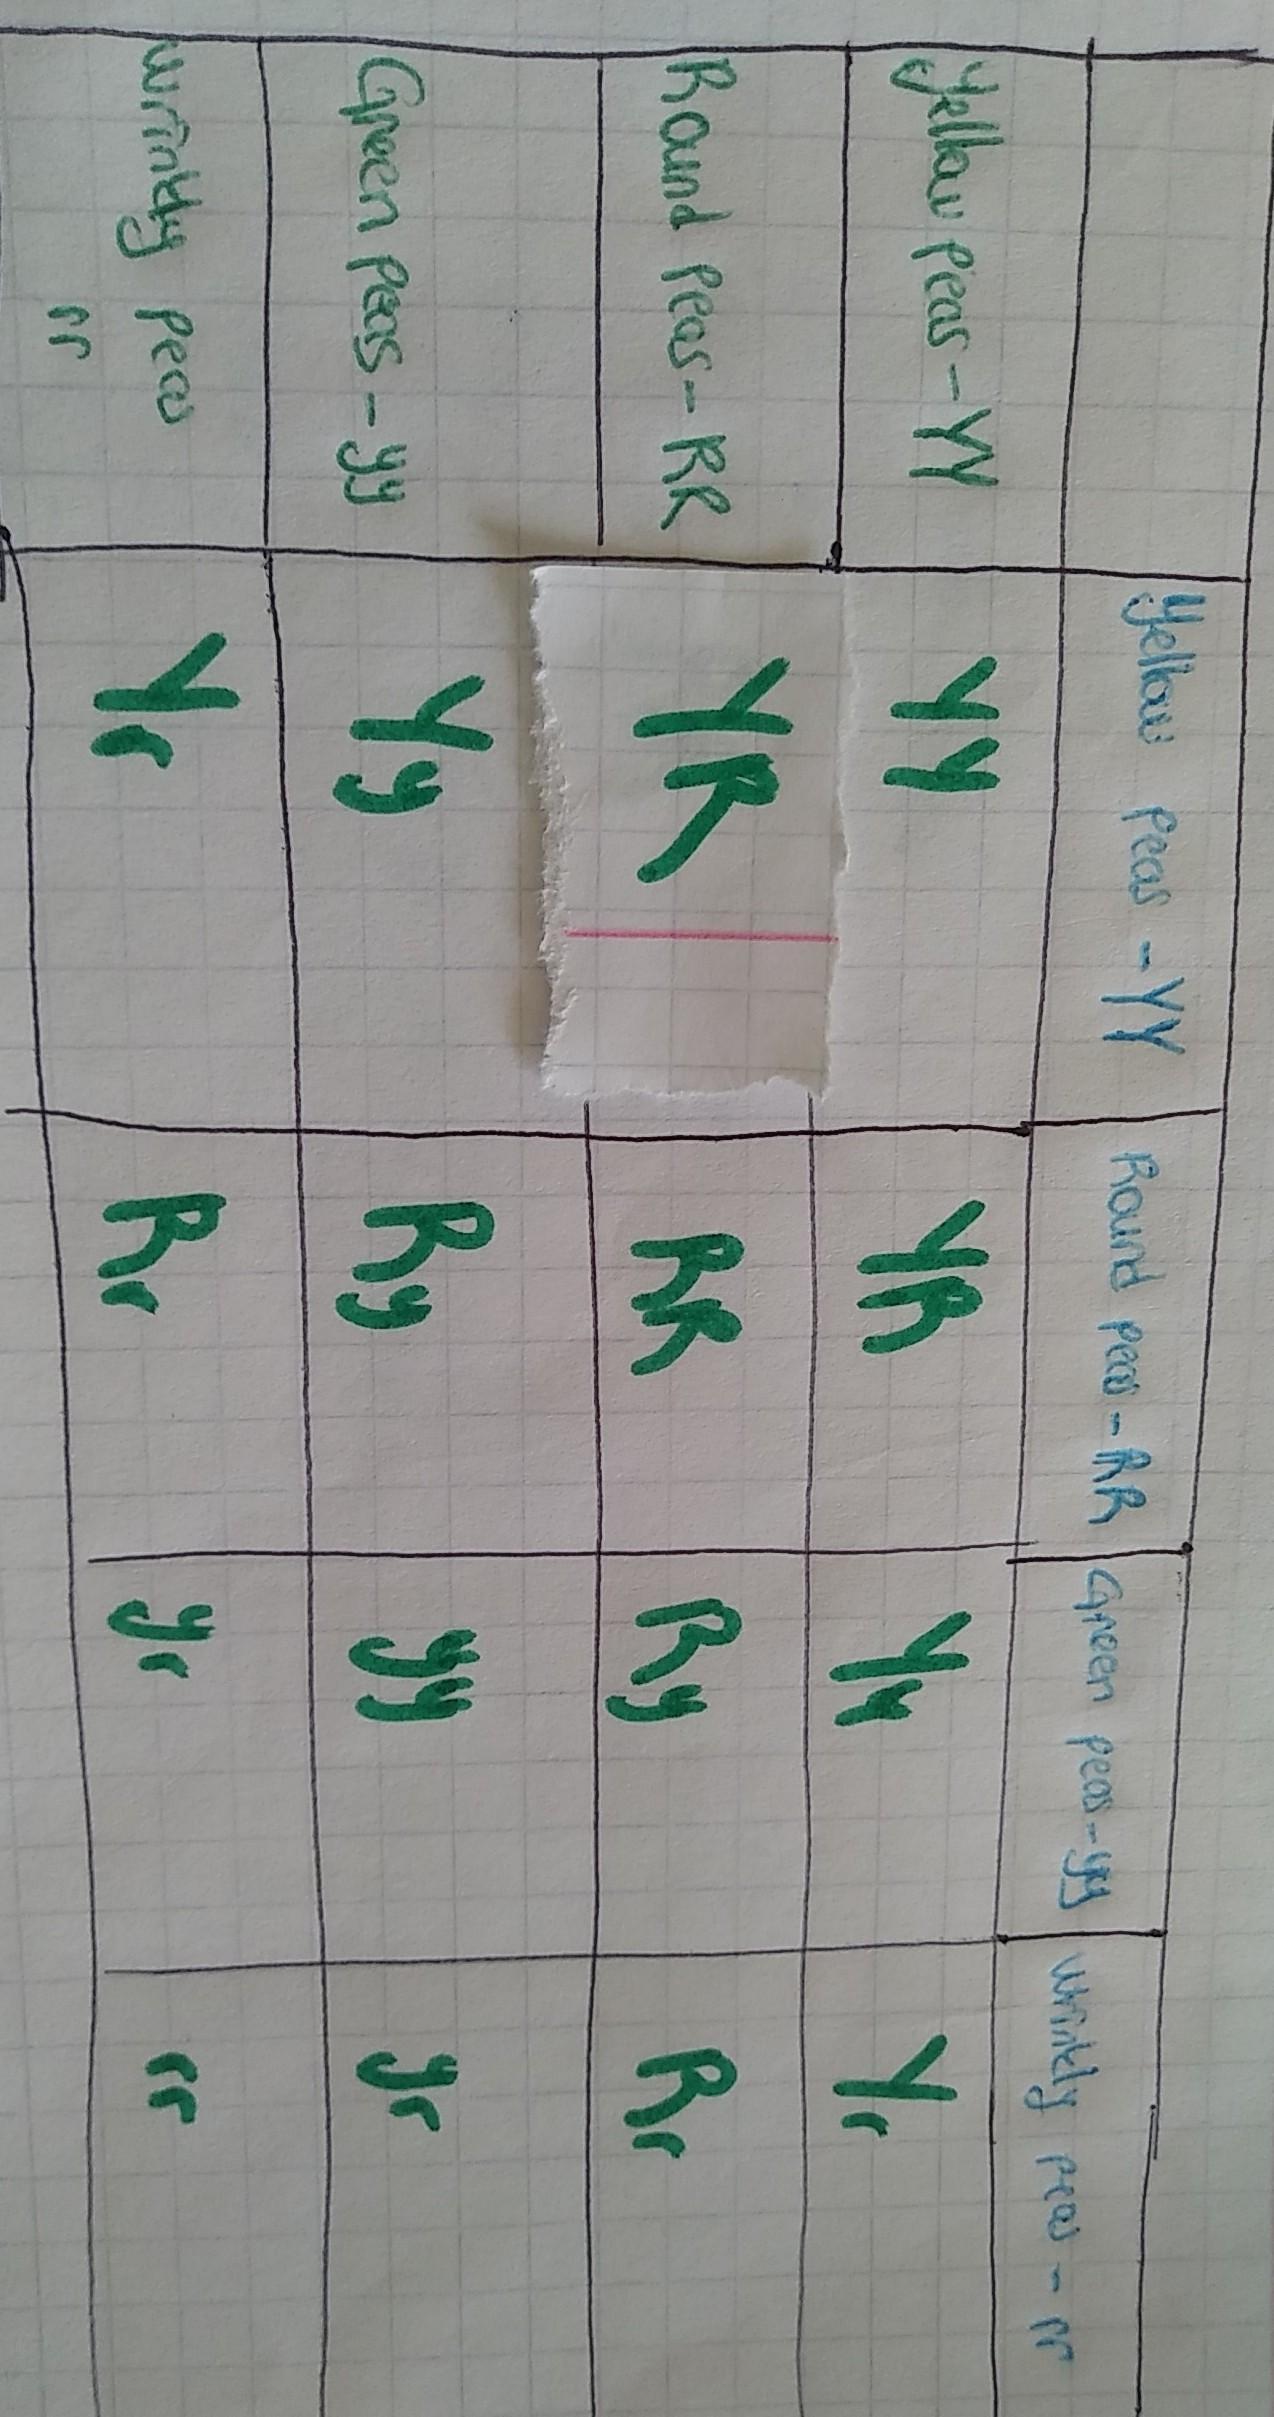 Yellow peas - YY
Round peas - RR
Green peas - yy
Wrinkly peas - rr
Yellow peas - YY
YY
YR
Yy
Yr
Round peas - RR
YR
RR
Ry
Rr
Green peas - yy
Yy
Ry
yy
yr
wrinkly peas
rr
Yr
Rr
yr
rr